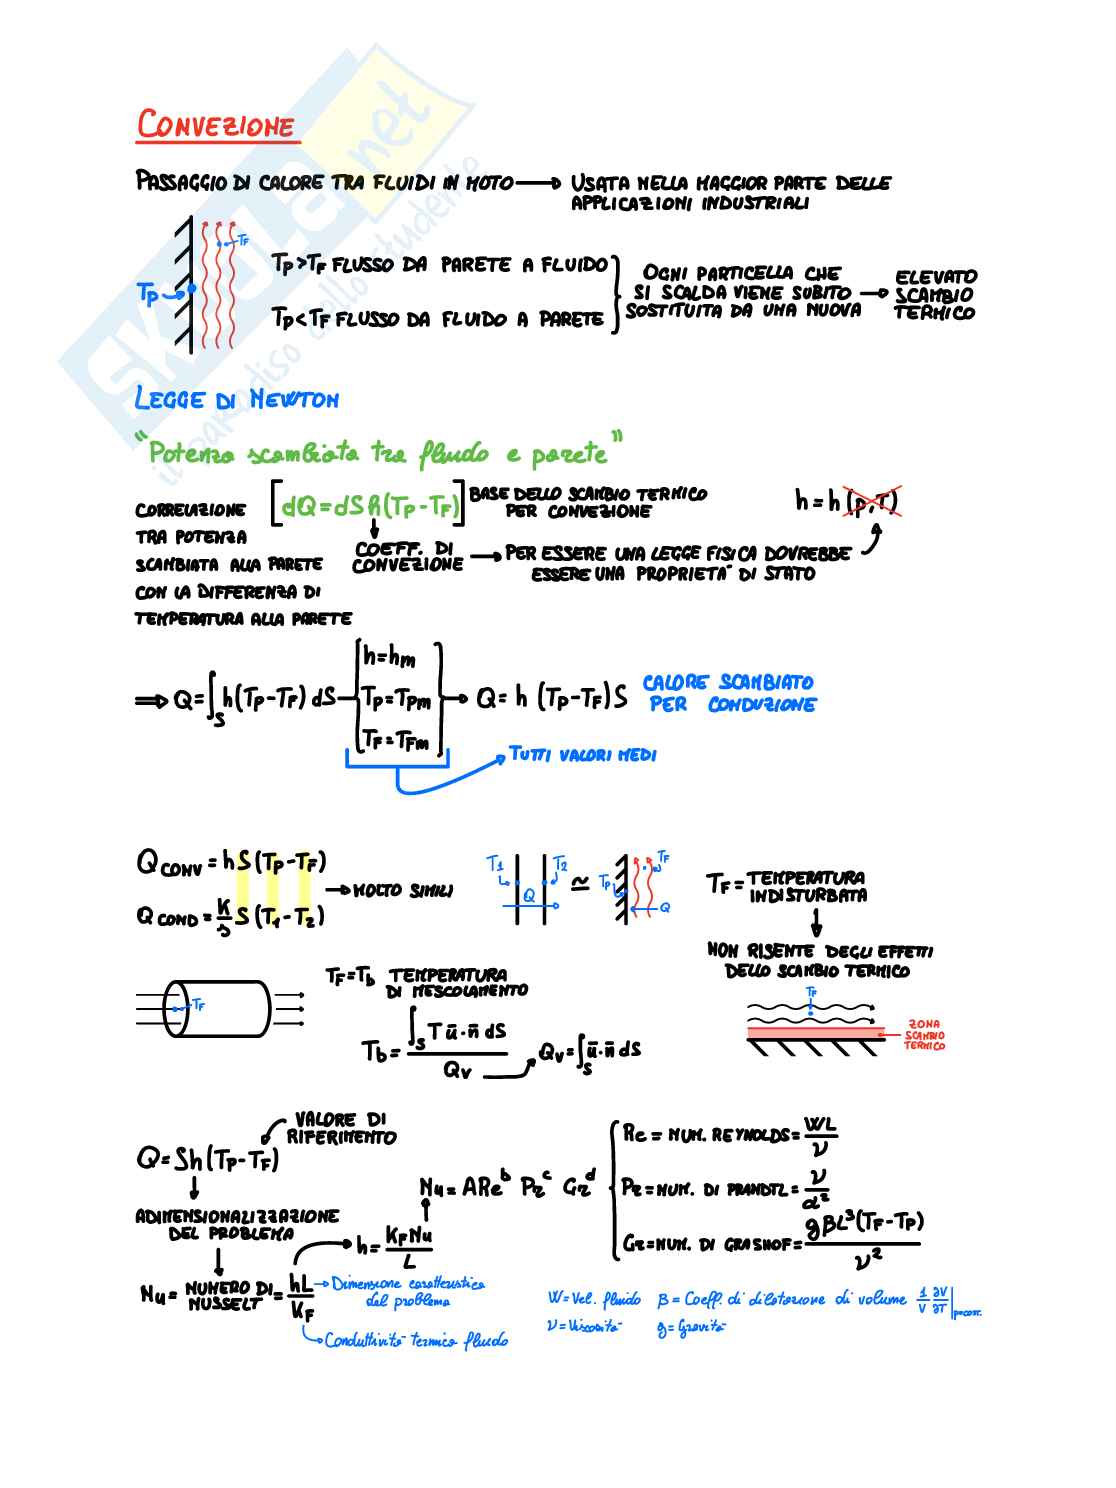 CONVEZIONE
PASSAGGIO DI CALORE TRA FLUIDI IN MOTO → USATA NELLA MAGGIOR PARTE DELLE
APPLICAZIONI INDUSTRIALI
TF
TP
TP>TF FLUSSO DA PARETE A FLUIDO
TP<TF FLUSSO DA FLUIDO A PARETE
OGNI PARTICELLA CHE
SI SCALDA VIENE SUBITO →
SOSTITUITA DA UNA NUOVA
ELEVATO
SCAMBIO
TERMICO
LEGGE DI NEWTON
"Potenza scambiata tra fluido e parete"
CORRELAZIONE
TRA POTENZA
SCAMBIATA ALLA PARETE
CON LA DIFFERENZA DI
TEMPERATURA ALLA PARETE
[dQ=dS h(TP-TF)]
BASE DELLO SCAMBIO TERMICO
PER CONVEZIONE
h=h(p,T)
COEFF. DI
CONVEZIONE
→ PER ESSERE UNA LEGGE FISICA DOVREBBE
ESSERE UNA PROPRIETA' DI STATO
⇒ Q=∫S h(TP-TF) dS
h=hm
TP=TPm
TF=TFm
→ Q=h (TP-TF)S
CALORE SCAMBIATO
PER CONDUZIONE
TUTTI VALORI MEDI
QCONV=hS(TP-TF)
→ MOLTO SIMILI
QCOND=K/s S(T1-T2)
T1
T2
Q
≃
TP
TF
Q
TF=TEMPERATURA
INDISTURBATA
NON RISENTE DEGLI EFFETTI
DELLO SCAMBIO TERMICO
TF
ZONA
SCAMBIO
TERMICO
TF
TF=Tb TEMPERATURA
DI MESCOLAMENTO
Tb=∫S T ū·n̄ dS / QV
QV=∫S ū·n̄ dS
VALORE DI
RIFERIMENTO
Q=Sh(TP-TF)
ADIMENSIONALIZZAZIONE
DEL PROBLEMA
Nu=NUMERO DI NUSSELT=hL/KF
→ Dimensione caratteristica
del problema
→ Conduttivita' termica fluido
h=KF Nu/L
Nu=ARe^b Pr^c Gr^d
Re=NUM. REYNOLDS=WL/ν
Pr=NUM. DI PRANDTL=ν/α²
Gr=NUM. DI GRASHOF=gβL³(TF-TP)/ν²
W=Vel. fluido β=Coeff. di dilatazione di volume 1/V ∂V/∂T|p=cost.
ν=Viscosita' g=Gravita'
SKUOLA.net
il paradiso dello studente